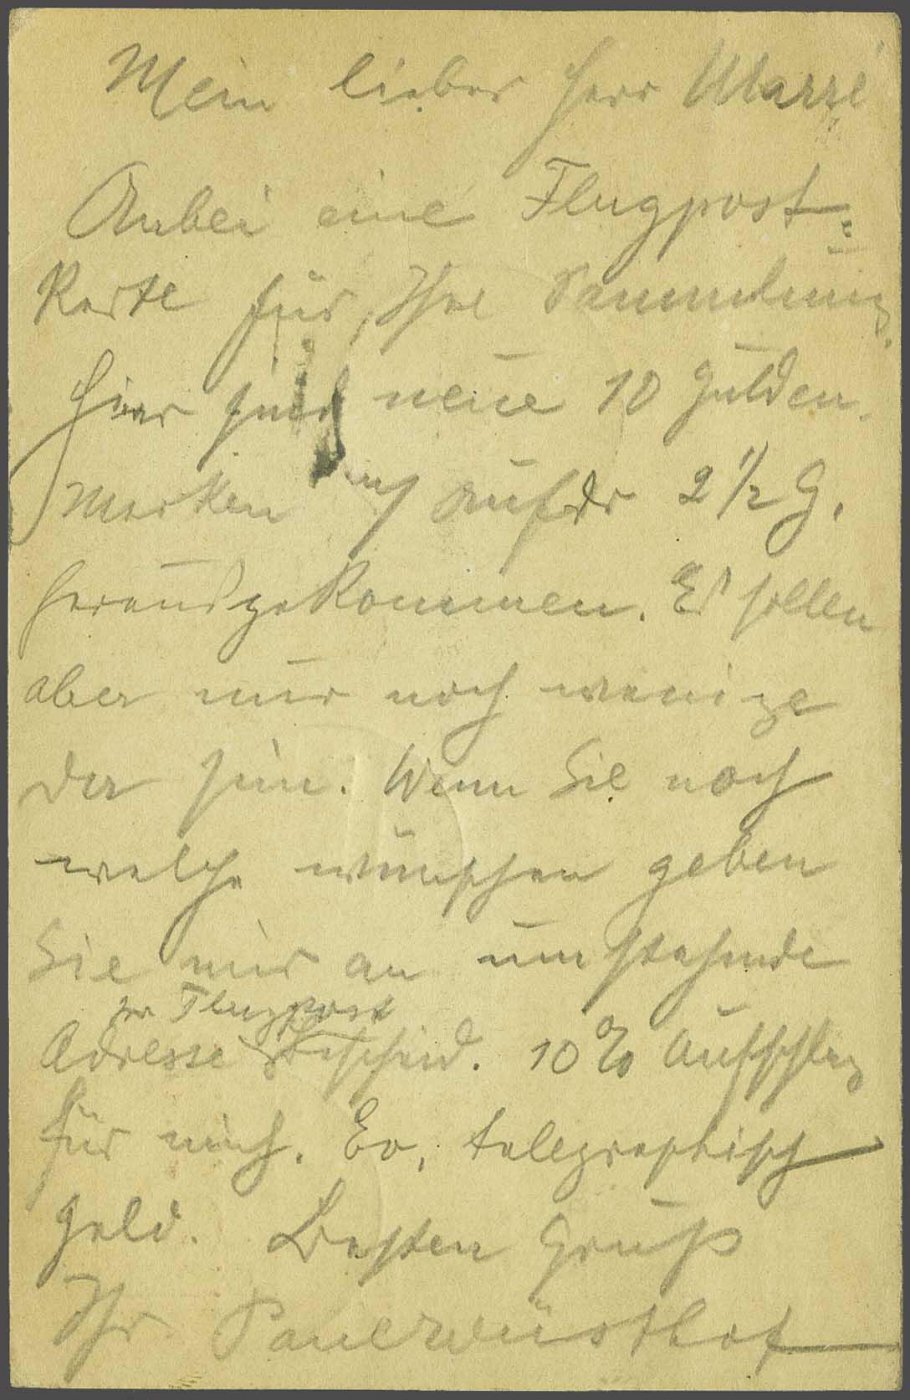 Mein lieber Herr Marré
Anbei eine Flugpost-
karte für Ihre Sammlung.
Hier sind neue 10 Gulden
Marken auf der 2 1/2 G.
herausgekommen. Es sollen
aber nur noch wenige
da sein. Wenn Sie noch
welche wünschen geben
Sie mir an umstehende
per Flugpost
Adresse Bescheid. 10% Aufschlag
für mich. Ev. telegraphisch
Geld. Besten Gruß
Ihr